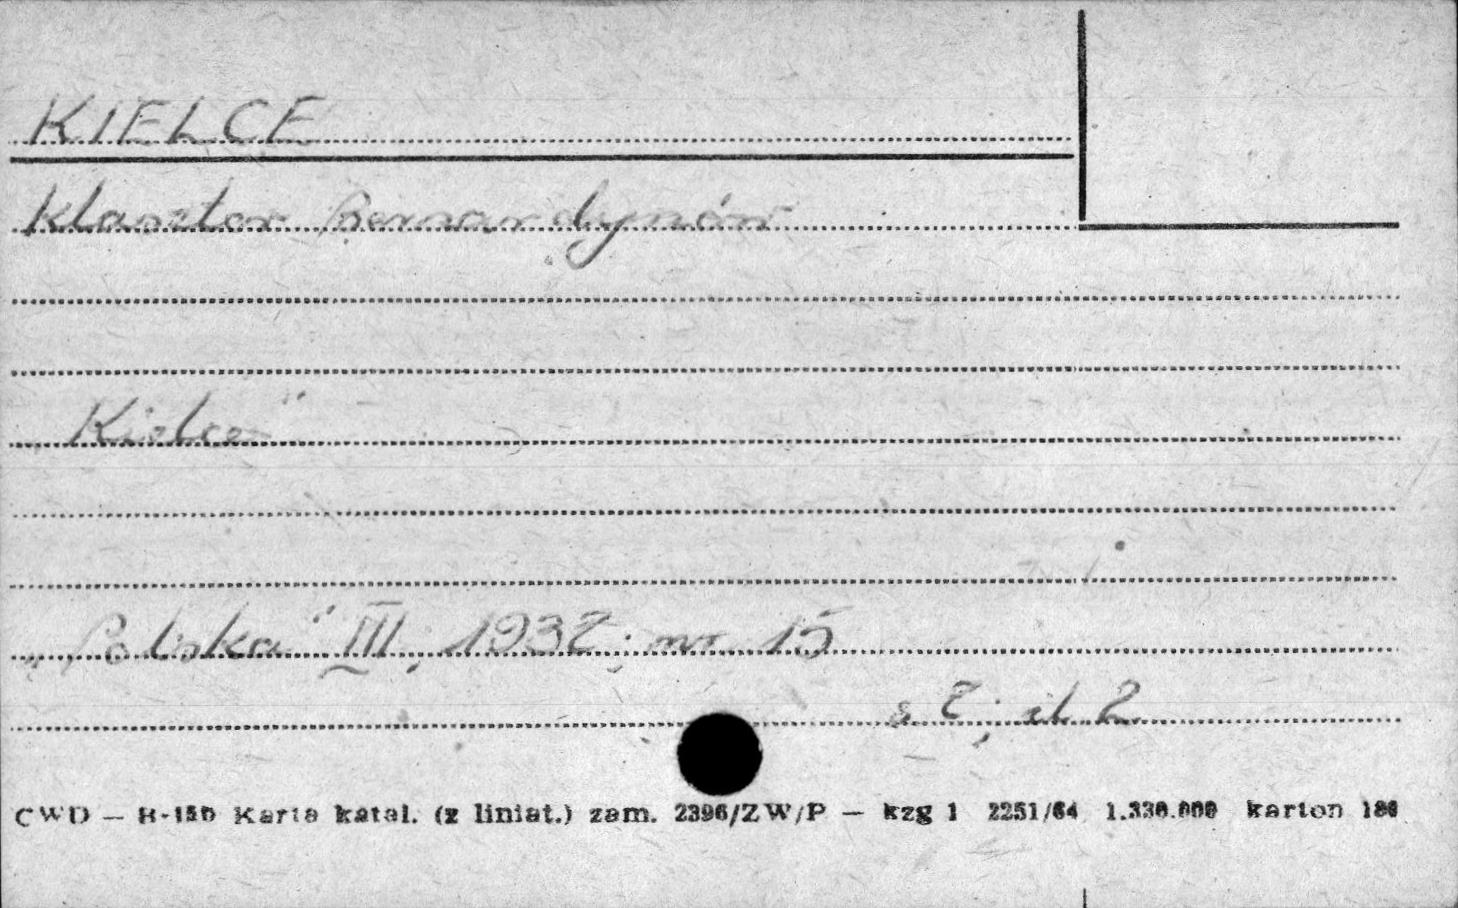 KIELCE
Klasztor Bernardynów
„Kielce"
„Polska" III, 1937; nr 15
s. 7; il. 2
CWD — H-150 Karta katal. (z liniat.) zam. 2396/ZW/P — kzg 1 2251/64 1.330.000 karton 180